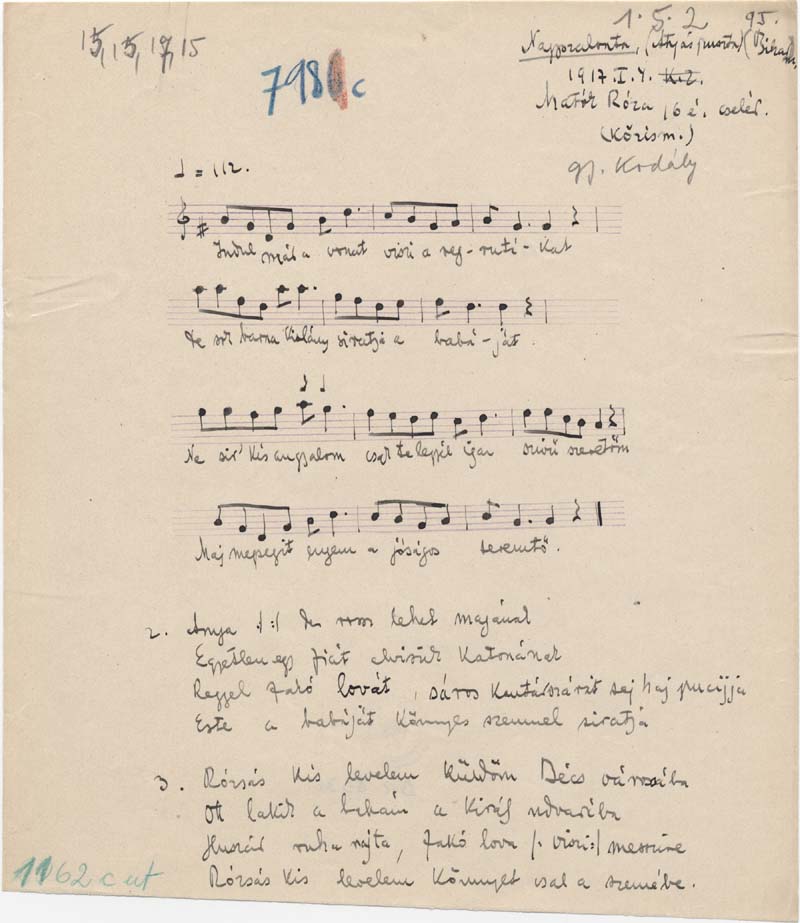 1 5 2 95.
15, 15, 19, 15
Nagyszalonta, (Atyás puszta) (Bihar m.
798 c
1917. I. 4. K. Z.
Matók Róza 16 é. cseléd.
(Közism.)
gy. Kodály
= 112.
Indul már a vonat viszi a reg-ruti-kat
sok barna kislány siratja a babá-ját
Ne sir' kis angyalom csak te legyél igaz szivű szeretőm
Maj megsegit engem a jóságos teremtő.
2. Anya :/: de rossz lehet magának
Egyetlen egy fiát elviszik katonának
Reggel fakó lovát, sáros kantárszárát sej haj pucijja
Este a babáját könnyes szemmel siratja
3. Rózsás kis levelem küldöm Bécs városába
Ott lakik a babám a király udvarába
Huszár ruha rajta, fakó lova /: viszi :/ messzire
Rózsás kis levelem könnyet csal a szemébe.
1162 c ut